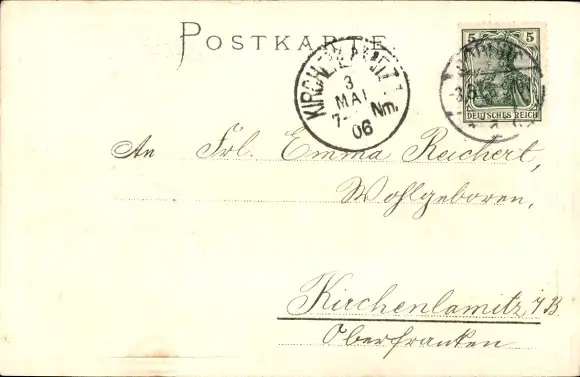 POSTKARTE
5 5
DEUTSCHES REICH
3
MAI
7- Nm.
06
An Frl. Emma Reichert,
Wohlgeboren,
Kirchenlamitz i/B.
Oberfranken